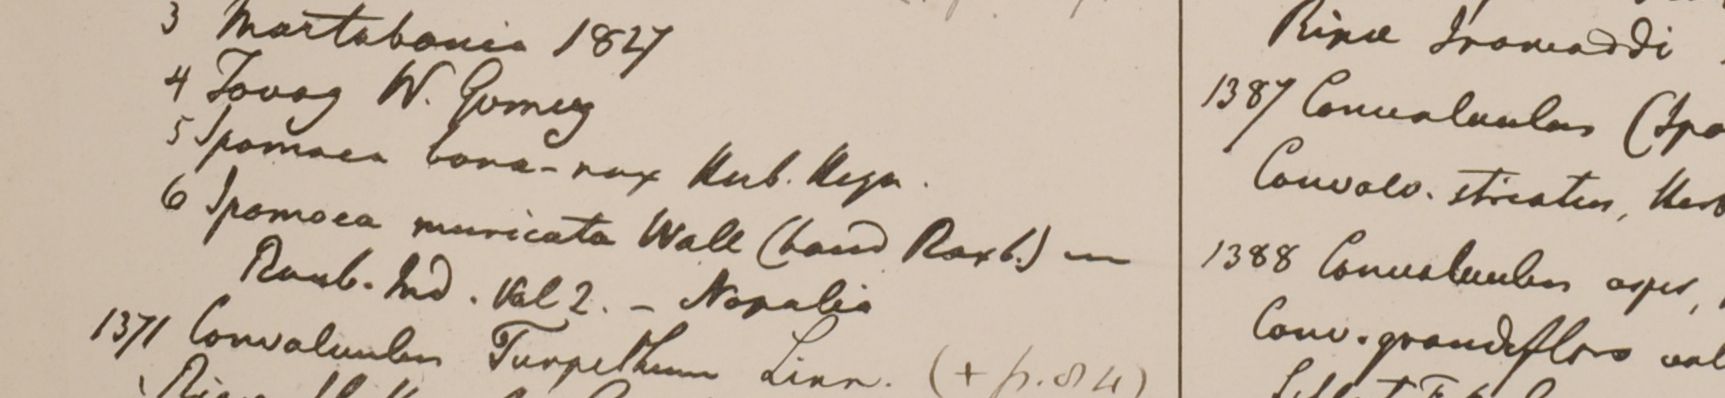 3 Martabania 1827
4 Tavoy W. Gomez
5 Ipomaea bona-nox Herb. Heyn.
6 Ipomoea muricata Wall (haud Roxb.) in
Roxb. Ind. Vol 2. - Napalia
1371 Convolvulus Turpethum Linn. (+ p. 84)
Ripae Irawaddi
1387 Convolvulus (Ipo
Convolv. striatus, Herb
1388 Convolvulus asper,
Conv. grandifloro